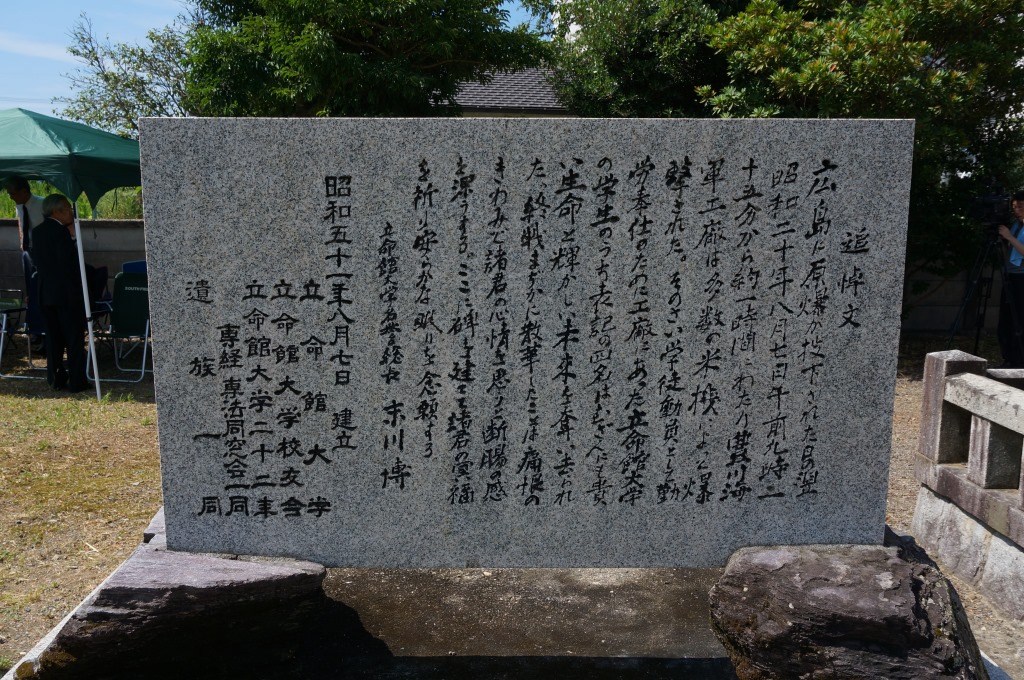 追悼文
広島に原爆が投下された日の翌
昭和二十年八月七日午前九時二
十五分から約一時間にわたり豊川海
軍工廠は多数の米機によって爆
撃された。そのさい学徒動員として勤
労奉仕のために工廠にあった立命館大学
の学生のうち表記の四名はむざんにも貴
い生命と輝かしい未来を奪い去られ
た。終戦まぢかに散華したことは痛恨の
きわみで諸君の心情を思うと断腸の感
を深うする。ここに碑を建て諸君の冥福
を祈り安らかな眠りを念願する
立命館大学名誉総長 末川博
昭和五十一年八月七日 建立
立命館大学
立命館大学校友会
立命館大学二十二年
専経専法同窓会一同
遺族一同